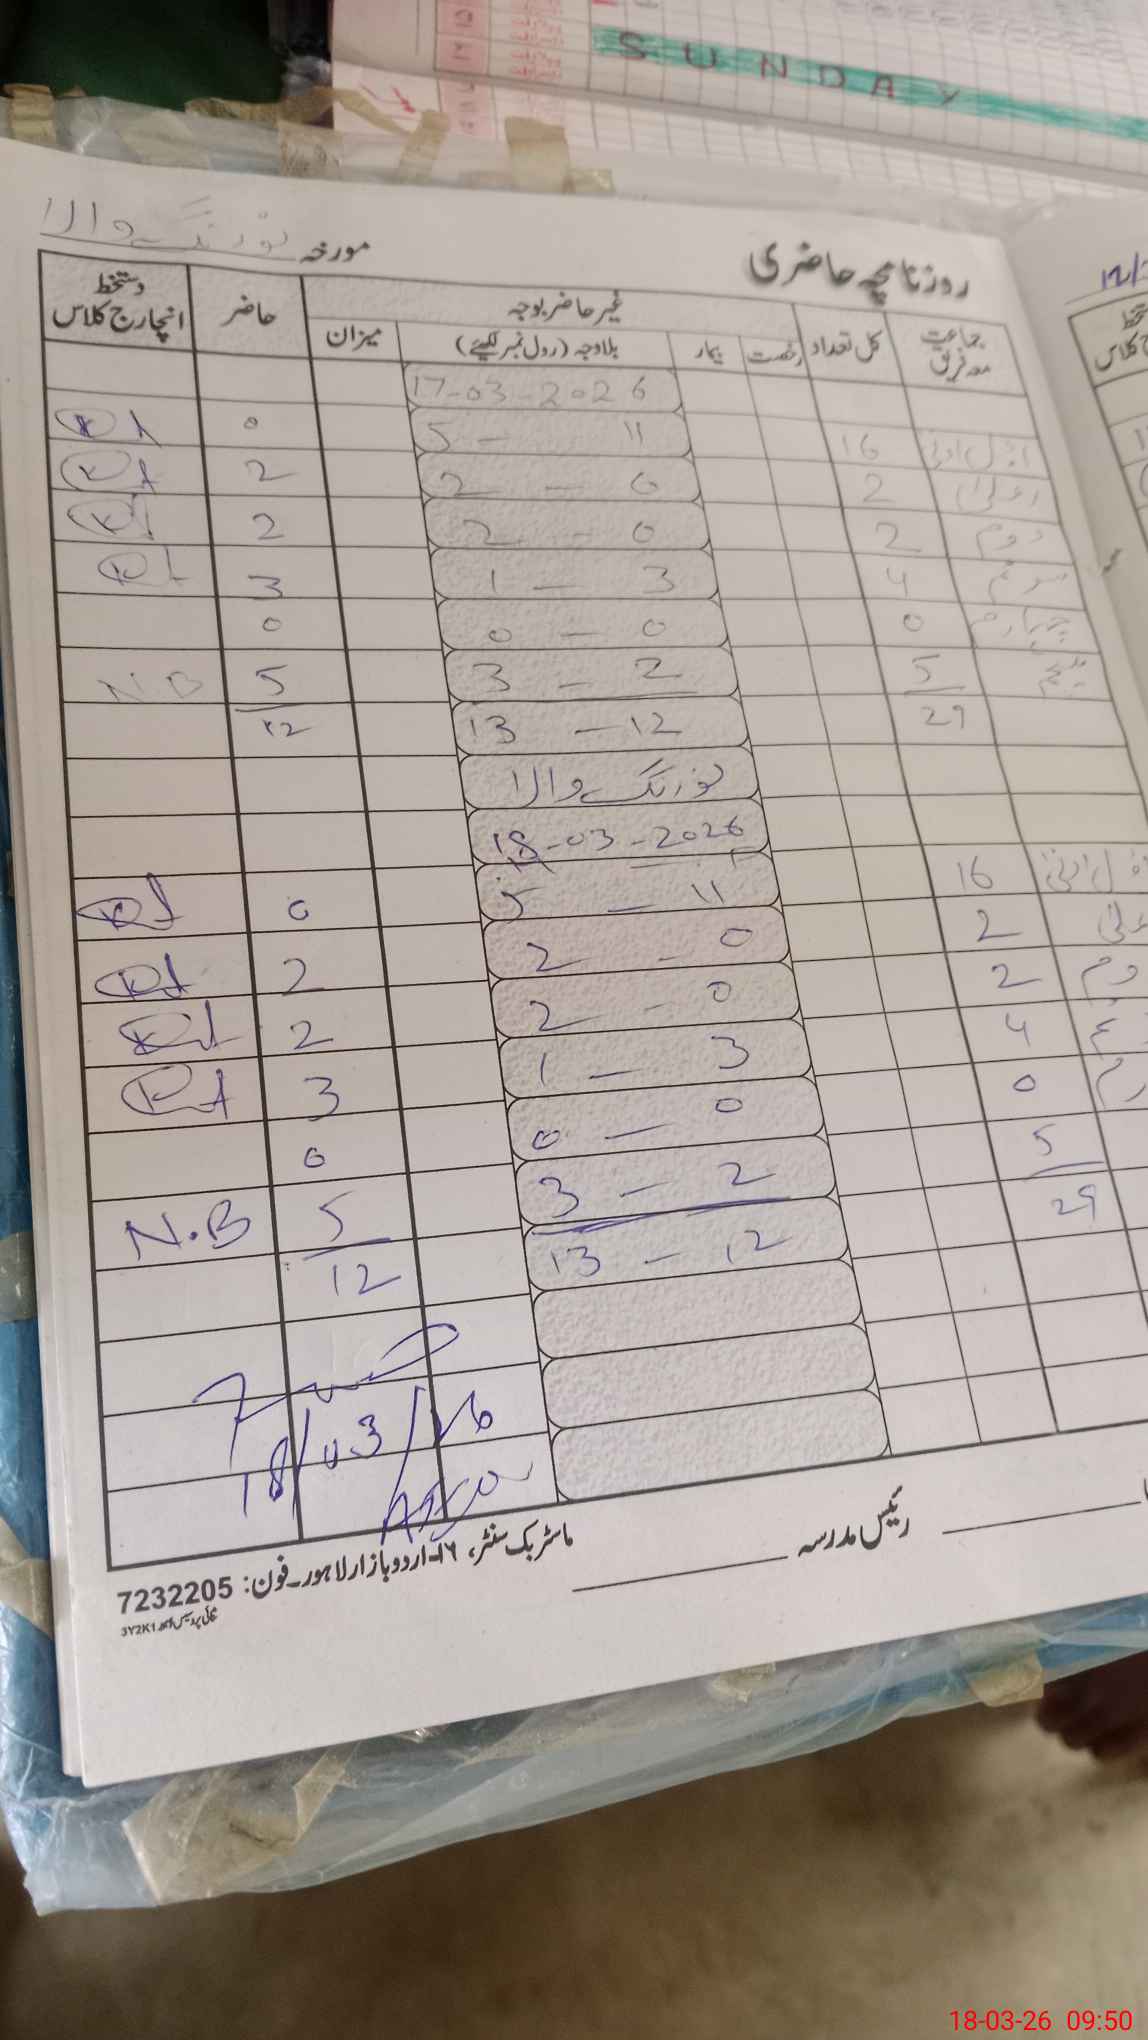 SUNDAY
روزنامچہ حاضری
مورخہ نورنگے والا
جماعت معہ فریق کل تعداد غیر حاضر بوجہ حاضر دستخط انچارج کلاس
رخصت بیمار بلاوجہ (رول نمبر لکھیئے) میزان
17-03-2026
اول ادنیٰ 16 5 - 11 0
اعلیٰ 2 2 - 0 2
دوم 2 2 - 0 2
سوئم 4 1 - 3 3
چہارم 0 0 - 0 0
پنجم 5 3 - 2 5 N.B
29 13 - 12 12
نورنگے والا
18-03-2026
اول ادنیٰ 16 5 - 11 0
علیٰ 2 2 - 0 2
دوم 2 2 - 0 2
4 1 - 3 3
رم 0 0 - 0 0
5 3 - 2 5 N.B
29 13 - 12 12
18/03/26
رئیس مدرسہ
ماسٹر بک سنٹر، ۱۶-اردو بازار لاہور۔ فون: 7232205
3Y2K1
18-03-26 09:50